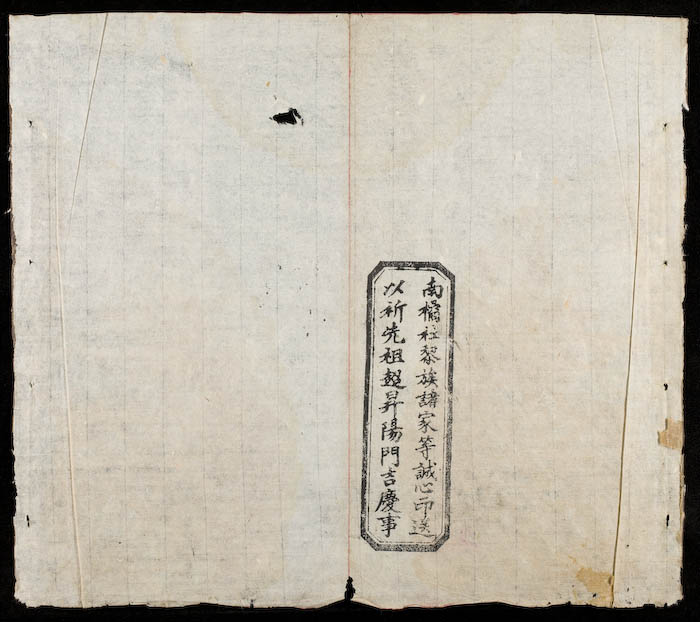 南橘社黎族諸家等誠心印送
以祈先祖超昇陽門吉慶事